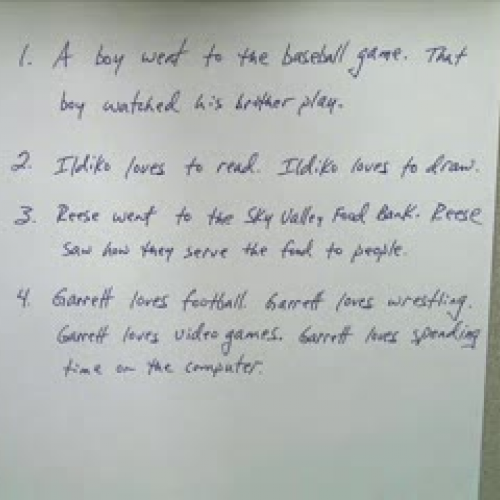 1. A boy went to the baseball game. That
boy watched his brother play.
2. Ildiko loves to read. Ildiko loves to draw.
3. Reese went to the Sky Valley Food Bank. Reese
saw how they serve the food to people.
4. Garrett loves football. Garrett loves wrestling.
Garrett loves video games. Garrett loves spending
time on the computer.